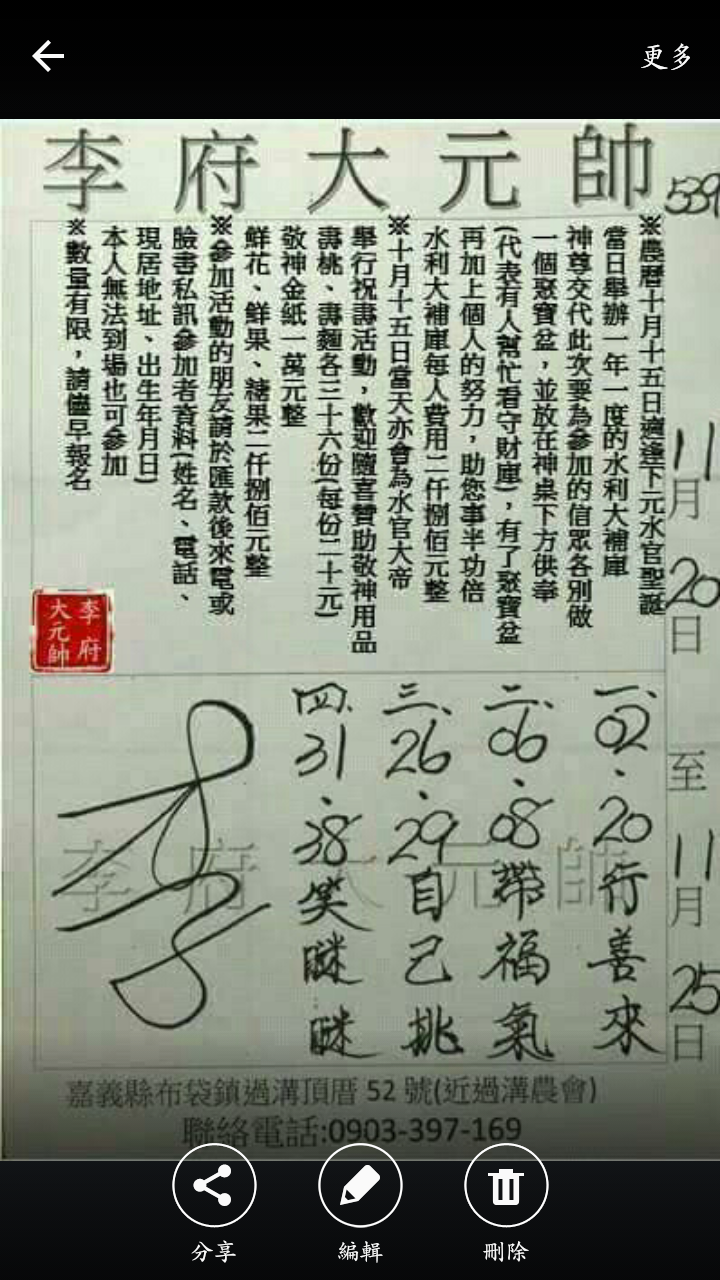 更多
李府大元帥
539
11月20日至11月25日
※農曆十月十五日適逢下元水官聖誕
當日舉辦一年一度的水利大補庫
神尊交代此次要為參加的信眾各別做
一個聚寶盆，並放在神桌下方供奉
(代表有人幫忙看守財庫)，有了聚寶盆
再加上個人的努力，助您事半功倍
水利大補庫每人費用二仟捌佰元整
※十月十五日當天亦會為水官大帝
舉行祝壽活動，歡迎隨喜贊助敬神用品
壽桃、壽麵各三十六份(每份二十元)
敬神金紙一萬元整
鮮花、鮮果、糖果二仟捌佰元整
※參加活動的朋友請於匯款後來電或
臉書私訊參加者資料(姓名、電話、
現居地址、出生年月日)
本人無法到場也可參加
※數量有限，請儘早報名
李府
大元帥
一、02.20行善來
二、06.08帶福氣
三、26.29自己挑
四、31.38笑瞇瞇
李府大元帥
嘉義縣布袋鎮過溝頂厝 52 號(近過溝農會)
聯絡電話:0903-397-169
分享
編輯
刪除